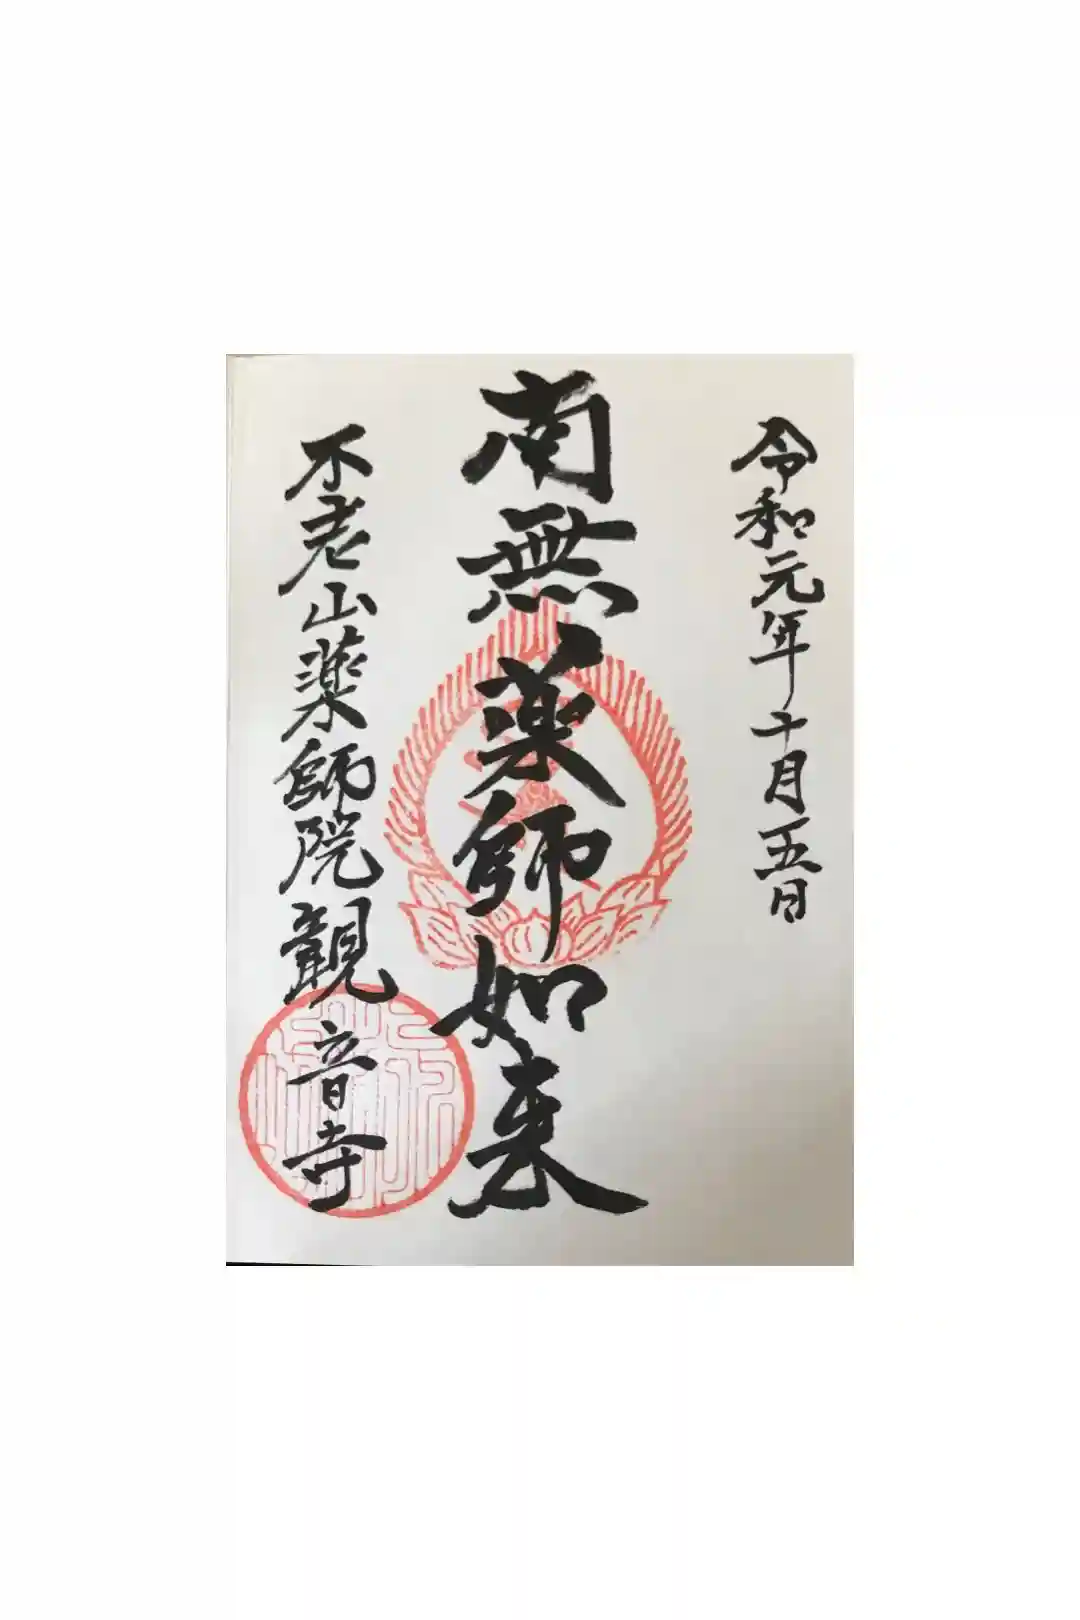 令和元年十月五日
南無薬師如来
不老山薬師院観音寺